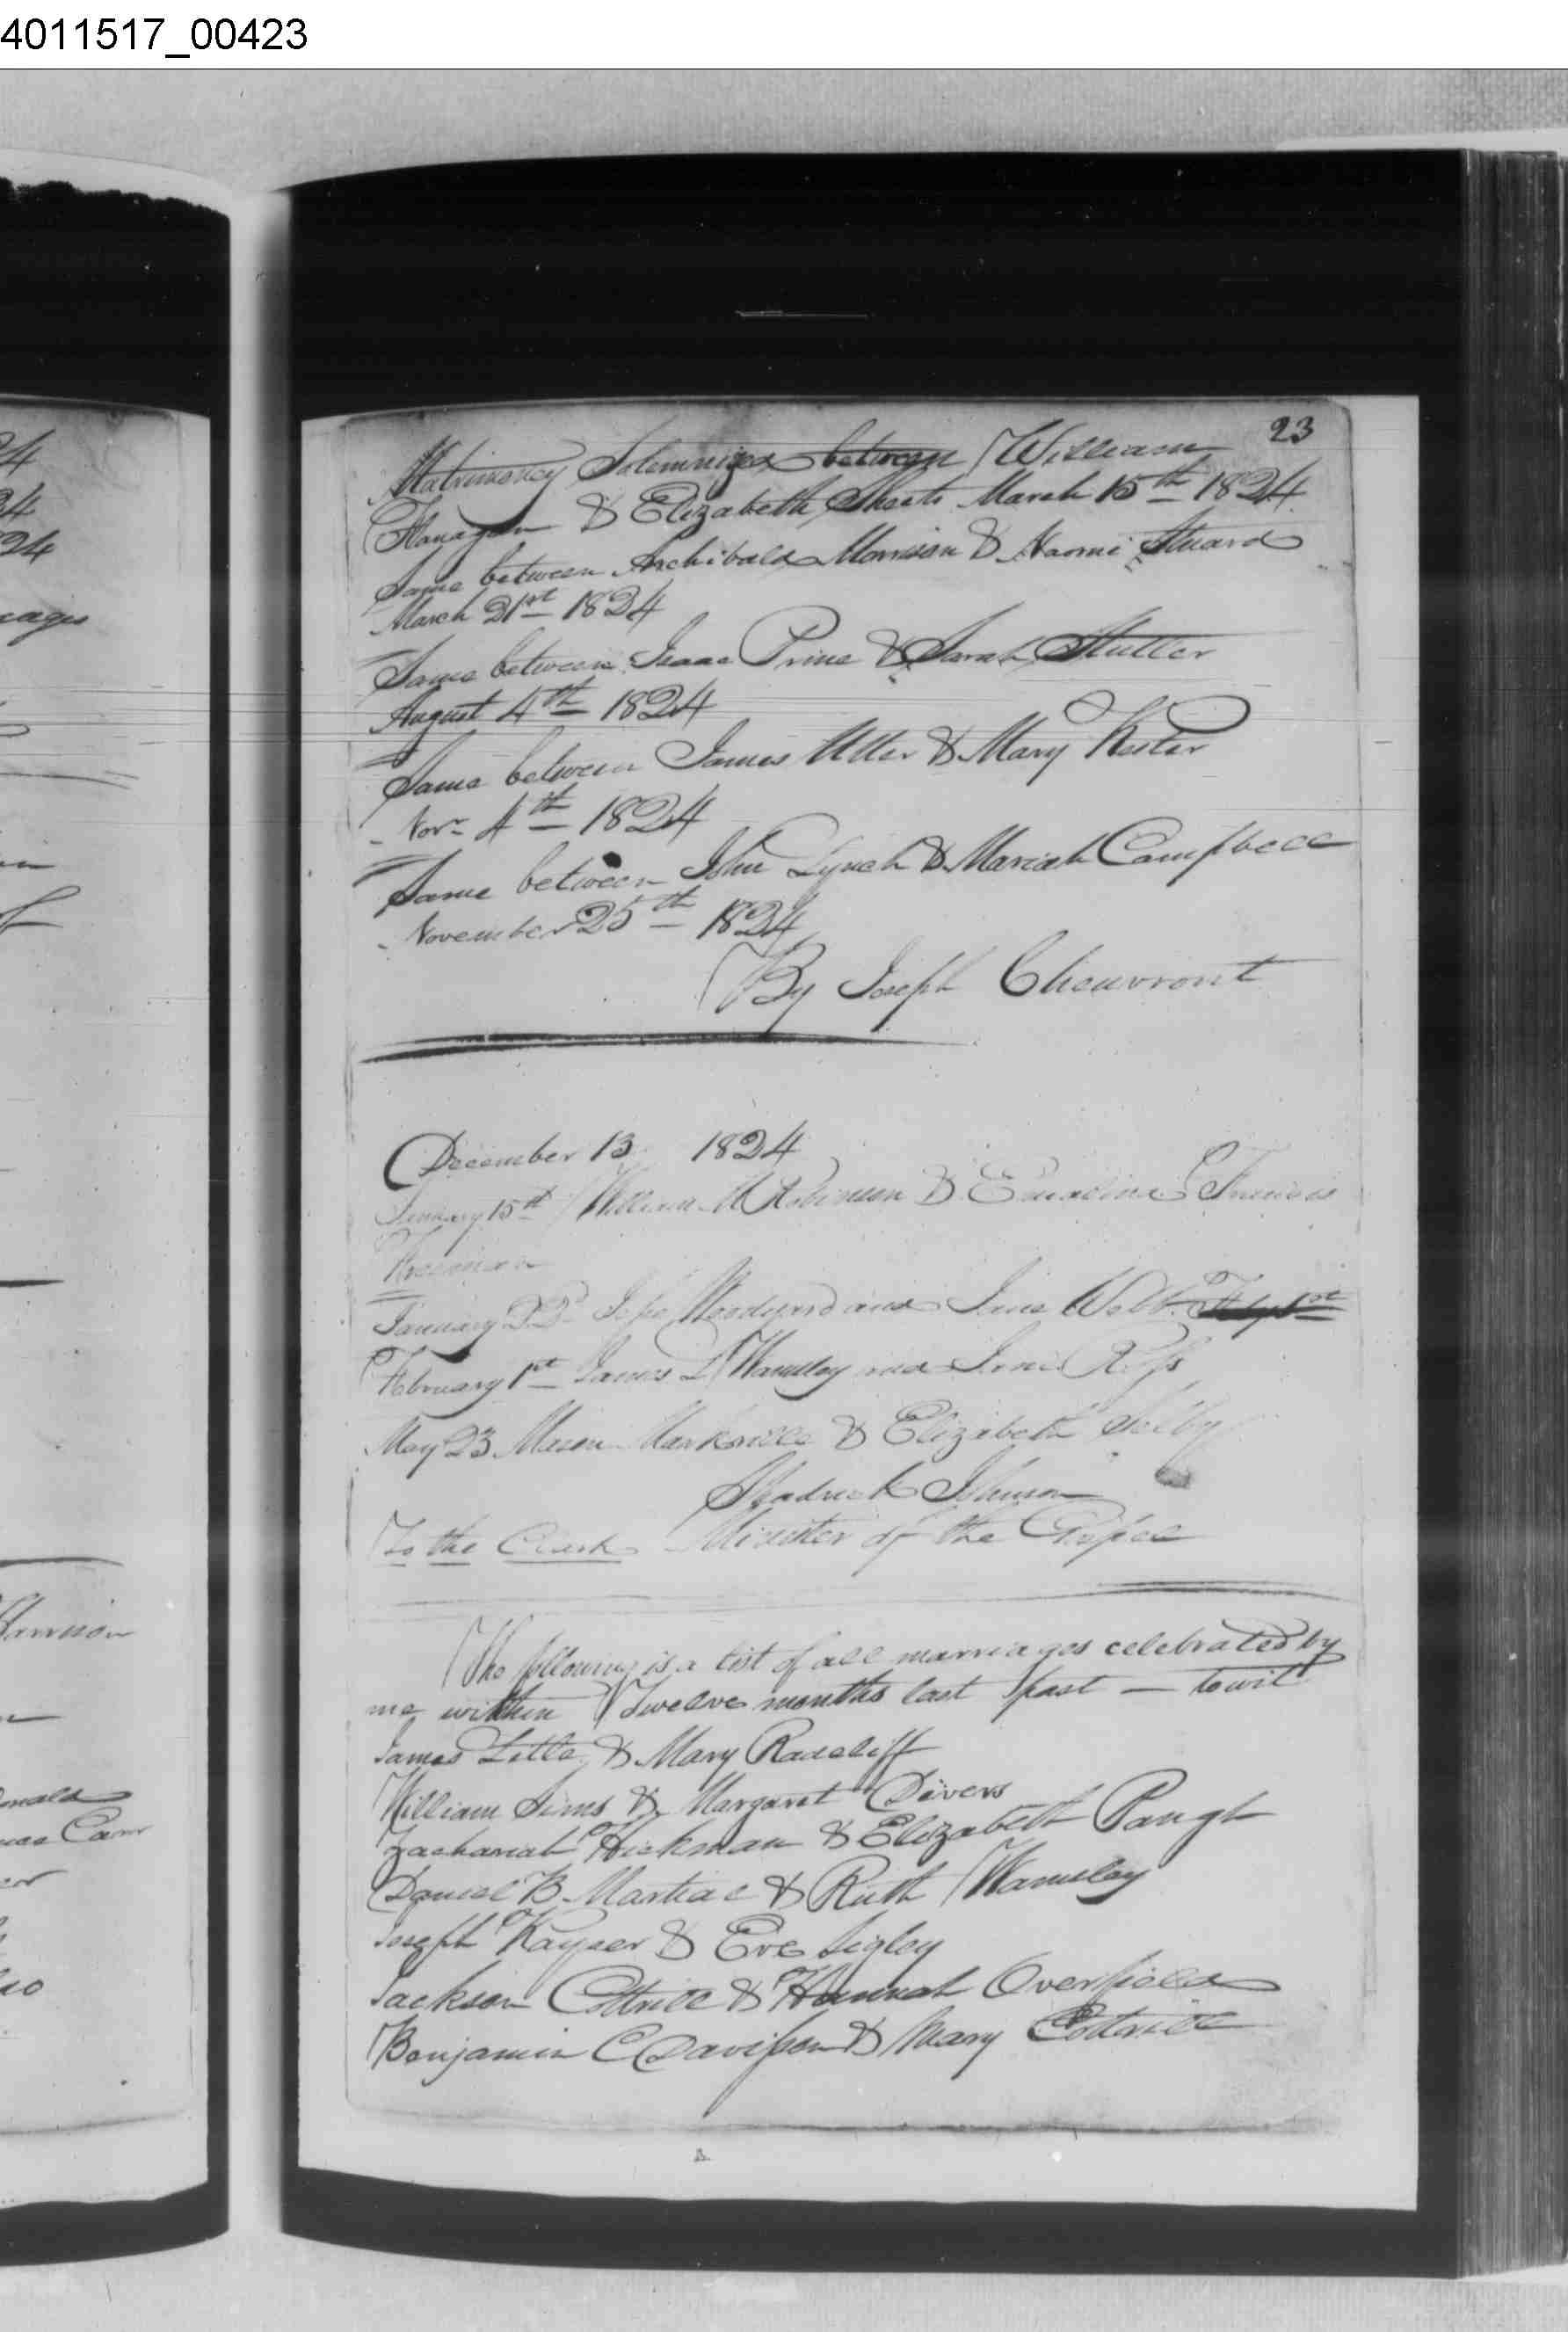 4011517_00423
23
Matrimony Solemnized between William
Flanagan & Elizabeth Sheets March 15th 1824
Same between Archibald Morrison & Naomi Stuard
March 21st 1824
Same between Isaac Prine & Sarah Stutler
August 4th 1824
Same between James Utter & Mary Kester
Novr 4th 1824
Same between John Lynch & Mariah Campbell
November 25th 1824
By Joseph Cheuvront
December 13 1824
January 15th William Robinson & Emaline Francis
Freeman
January 22d Jesse Woodyard and Jane Webb
February 1st James L Wamsley and Ross
May 23 Mason & Elizabeth Selby
Shadrick Johnson
To the Clerk Minister of the Gospel
The following is a list of all marriages celebrated by
me within Twelve months last past — towit
James Little & Mary Radcliff
William Sims & Margaret Divers
Zachariah Hickman & Elizabeth Paugh
Daniel B. & Ruth Wamsley
Joseph Kayser & Eve Sigley
Jackson Cottrill & Hannah Overfield
Benjamin C Davisson & Mary Cottrill